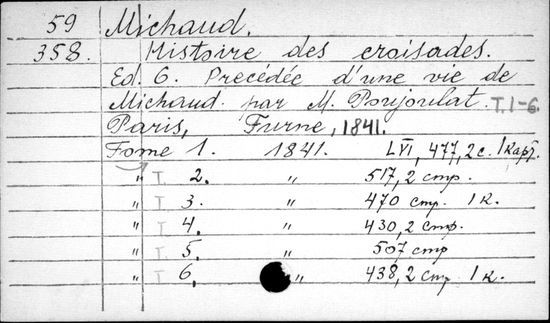 59 Michaud.
358. Histoire des croisades.
Ed. 6. Precédée d'une vie de
Michaud par M. Poujoulat. T.1-6.
Paris, Furne, 1841.
Tome 1. 1841. LVI, 477, 2 с. 1 карт.
" T. 2. " 517, 2 стр.
" T. 3. " 470 стр. 1 к.
" T. 4. " 430, 2 стр.
" T. 5. " 507 стр
" T. 6. " 438, 2 стр 1 к.